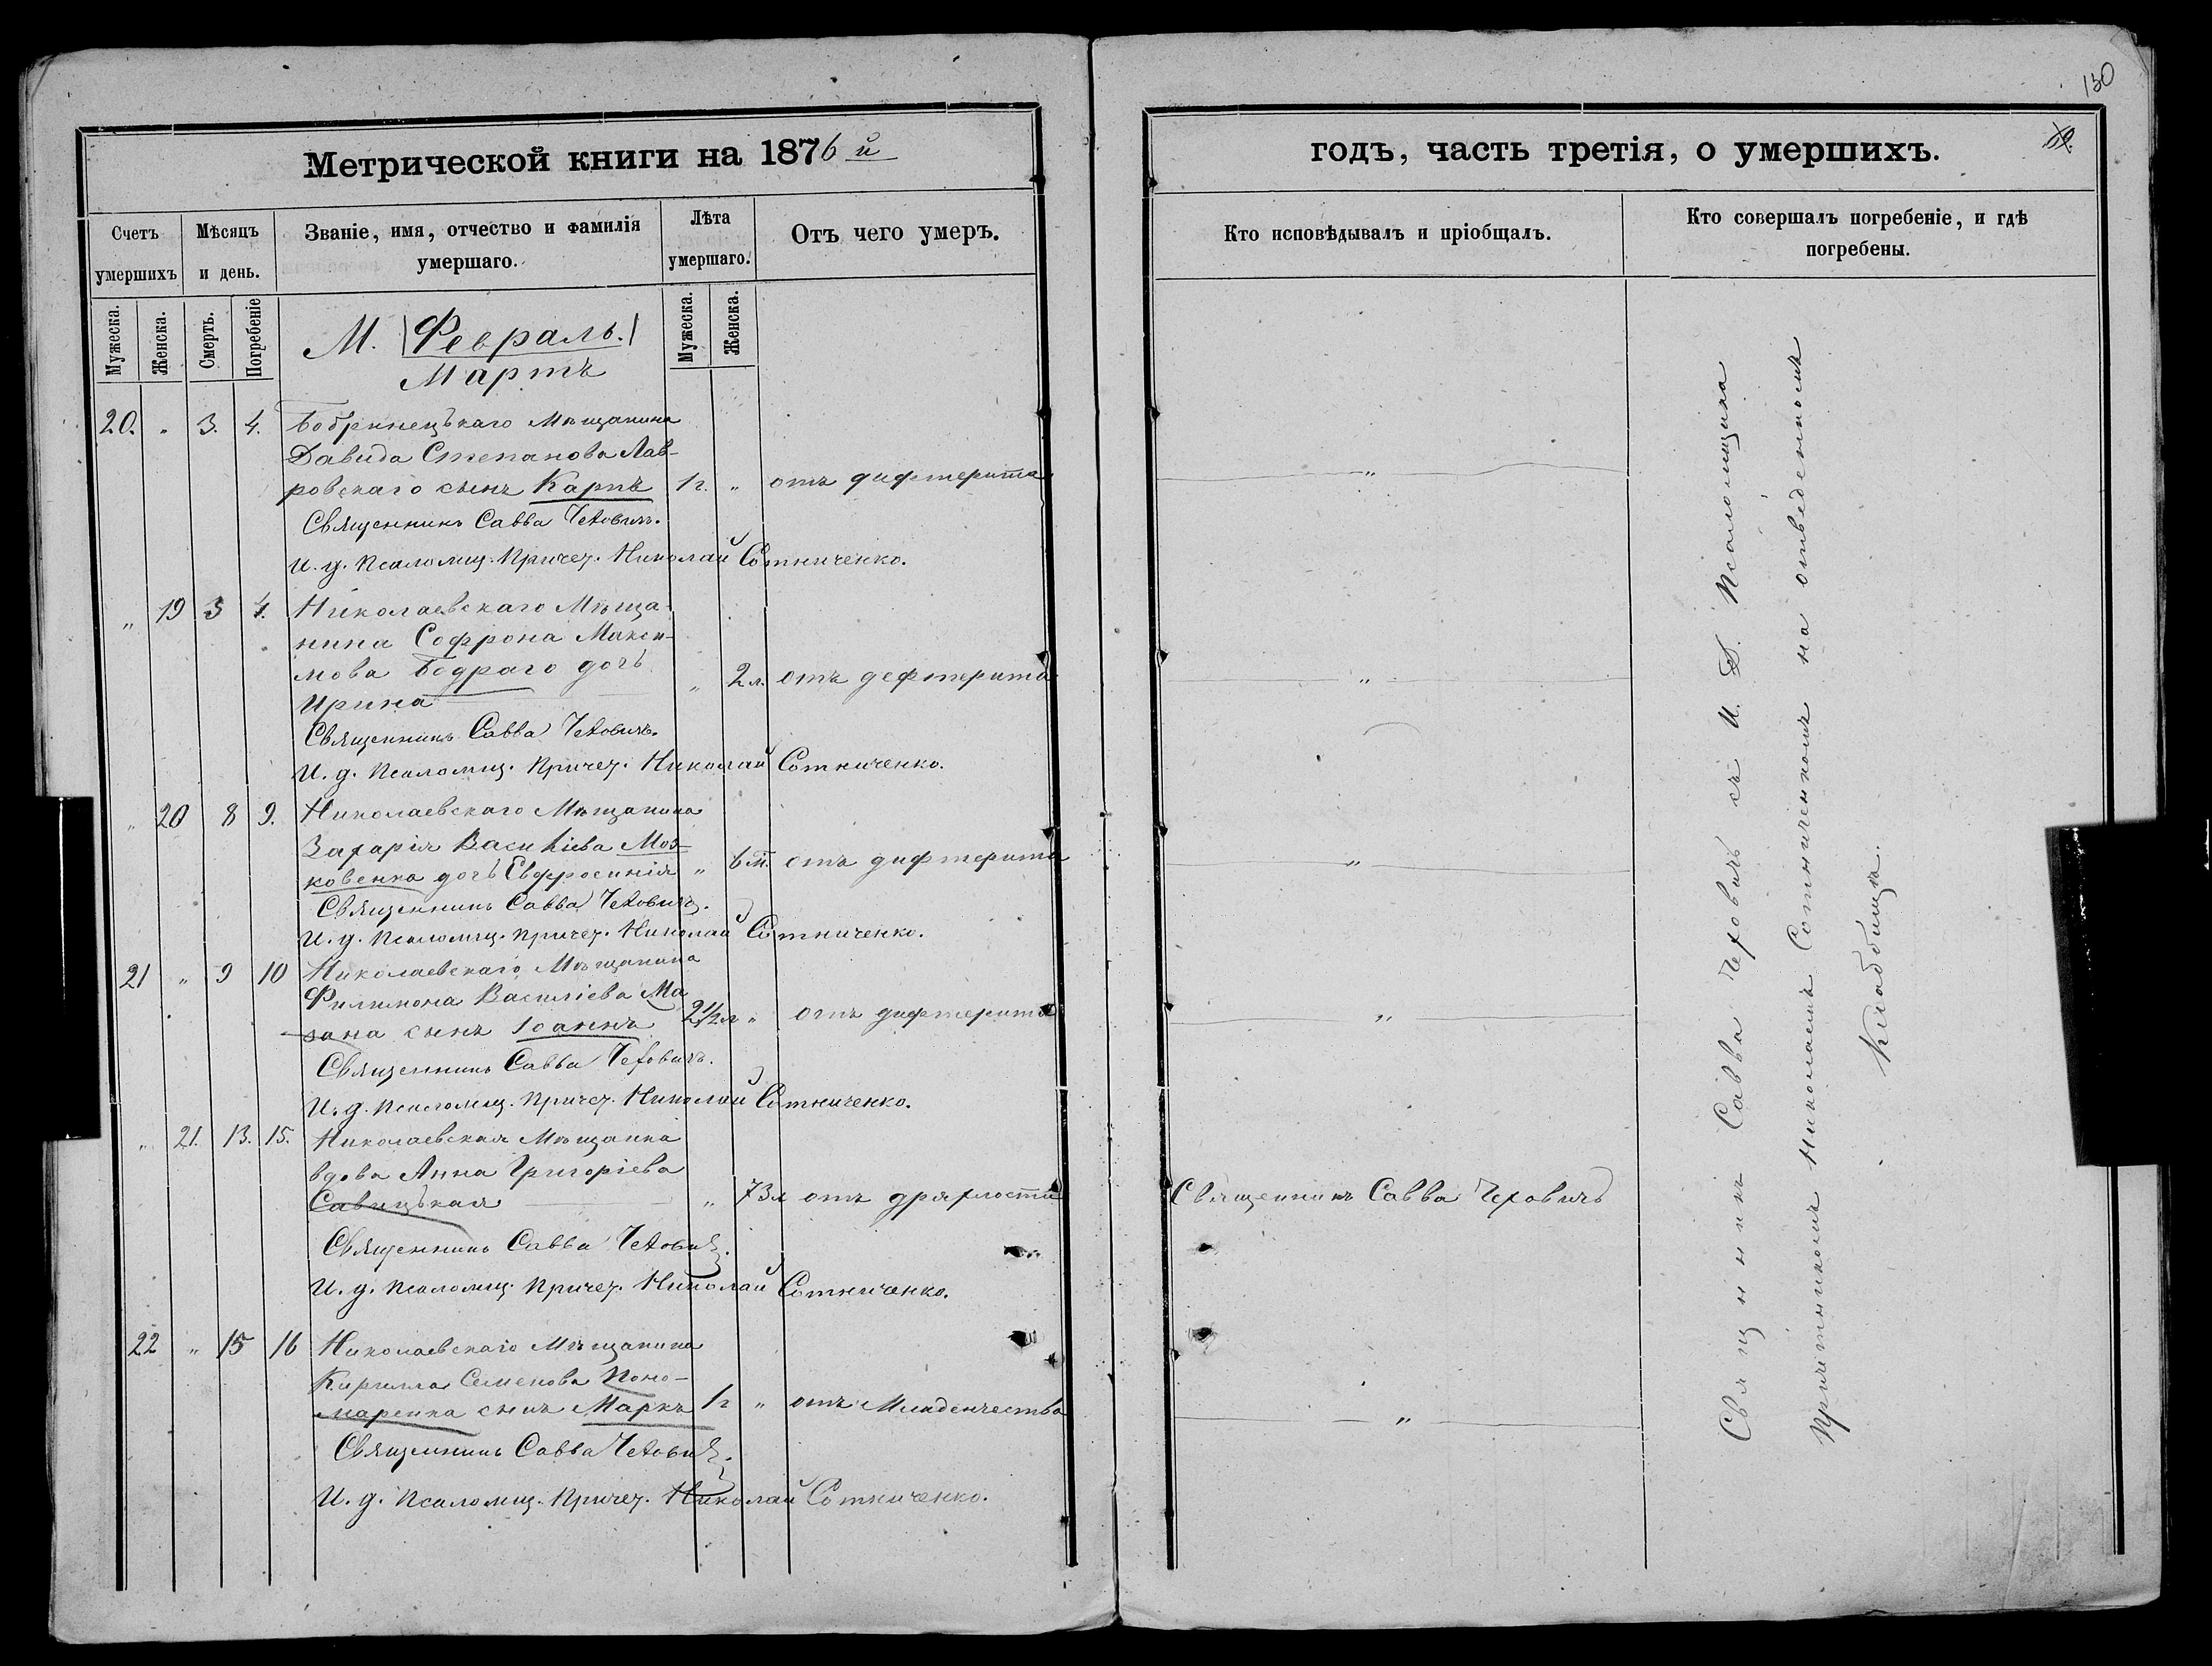 130
Метрической книги на 1876 й
годъ, часть третія, о умершихъ.
Счетъ умершихъ
Мѣсяцъ и день.
Званіе, имя, отчество и фамилія умершаго.
Лѣта умершаго.
Отъ чего умеръ.
Кто исповѣдывалъ и пріобщалъ.
Кто совершалъ погребеніе, и гдѣ погребены.
Мужеска.
Женска.
Смерть.
Погребеніе
М. (Февраль.)
Мартъ
Мужеска.
Женска.
20. " 3. 4. Бобринецькаго Мѣщанина
Давида Степанова Лав-
ровскаго сынъ Карпъ 1 г. " отъ дифтерита "
Священникъ Савва Чехович.
И. д. Псаломщ. Причет. Николай Сотниченко.
" 19 3 4. Николаевскаго Мѣща-
нина Софрона Макси-
мова Бодраго дочь
Ирина " 2 л. отъ дефтерита "
Священникъ Савва Чеховичъ.
И. д. Псаломщ. Причет. Николай Сотниченко.
" 20 8 9. Николаевскаго Мѣщанина
Захарія Василіева Моз-
ковенка дочь Евфросинія " 6 м. отъ дифтерита "
Священникъ Савва Чехович.
И. д. Псаломщ. Причет. Николай Сотниченко.
21 " 9 10 Николаевскаго Мѣщанина
Филимона Василіева Ма
зана сынъ Іоаннъ 2½ л " отъ дифтерита "
Священникъ Савва Чехович.
И. д. Псаломщ. Причет. Николай Сотниченко.
" 21. 13. 15. Николаевская Мѣщанка
вдова Анна Григоріева
Савицькая " 73 л отъ дряхлости Священникъ Савва Чеховичъ
Священникъ Савва Чехович.
И. д. Псаломщ. Причет. Николай Сотниченко.
22 " 15 16 Николаевскаго Мѣщанина
Кирилла Семенова Поно-
маренка сынъ Маркъ 1 г " отъ Младенчества "
Священникъ Савва Чехович.
И. д. Псаломщ. Причет. Николай Сотниченко.
Свящнникъ Савва Чеховичъ съ И. Д. Псаломщика
Причетникомъ Николаемъ Сотниченкомъ на отведенномъ
Кладбищѣ.